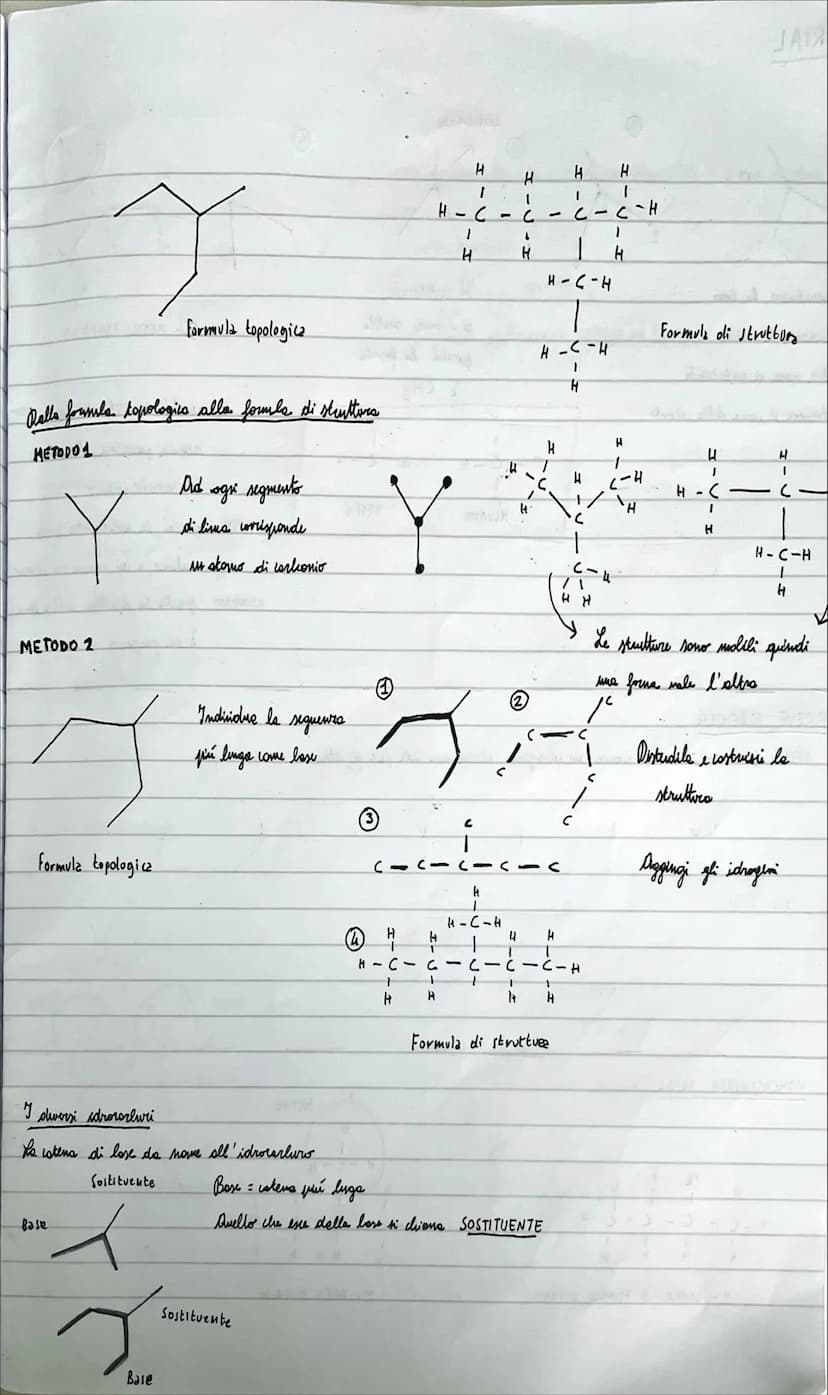 H H H H
H - C - C - C - C - H
H H H
H - C - H
Formula topologica
Formula di struttura
H - C - H
H
Dalla formula topologica alla formula di struttura
METODO 1
Ad ogni segmento
di linea corrisponde
un atomo di carbonio
H H H H H
H C H C - H H - C — C —
H C H H
C - H H - C - H
H H H
METODO 2
Le strutture sono mobili quindi
una forma vale l'altra
Individua la sequenza
più lunga come base
①
②
C
C — C
C C
C
Distendila e costruisci la
struttura
Formula topologica
③
C
C - C - C - C - C
Aggiungi gli idrogeni
④
H
H - C - H
H H H H
H - C - C - C - C - C - H
H H H H
Formula di struttura
I diversi idrocarburi
La catena di base da nome all'idrocarburo
Sostituente
Base = catena più luga
Base
Quello che esce dalla base si chiama SOSTITUENTE
Sostituente
Base